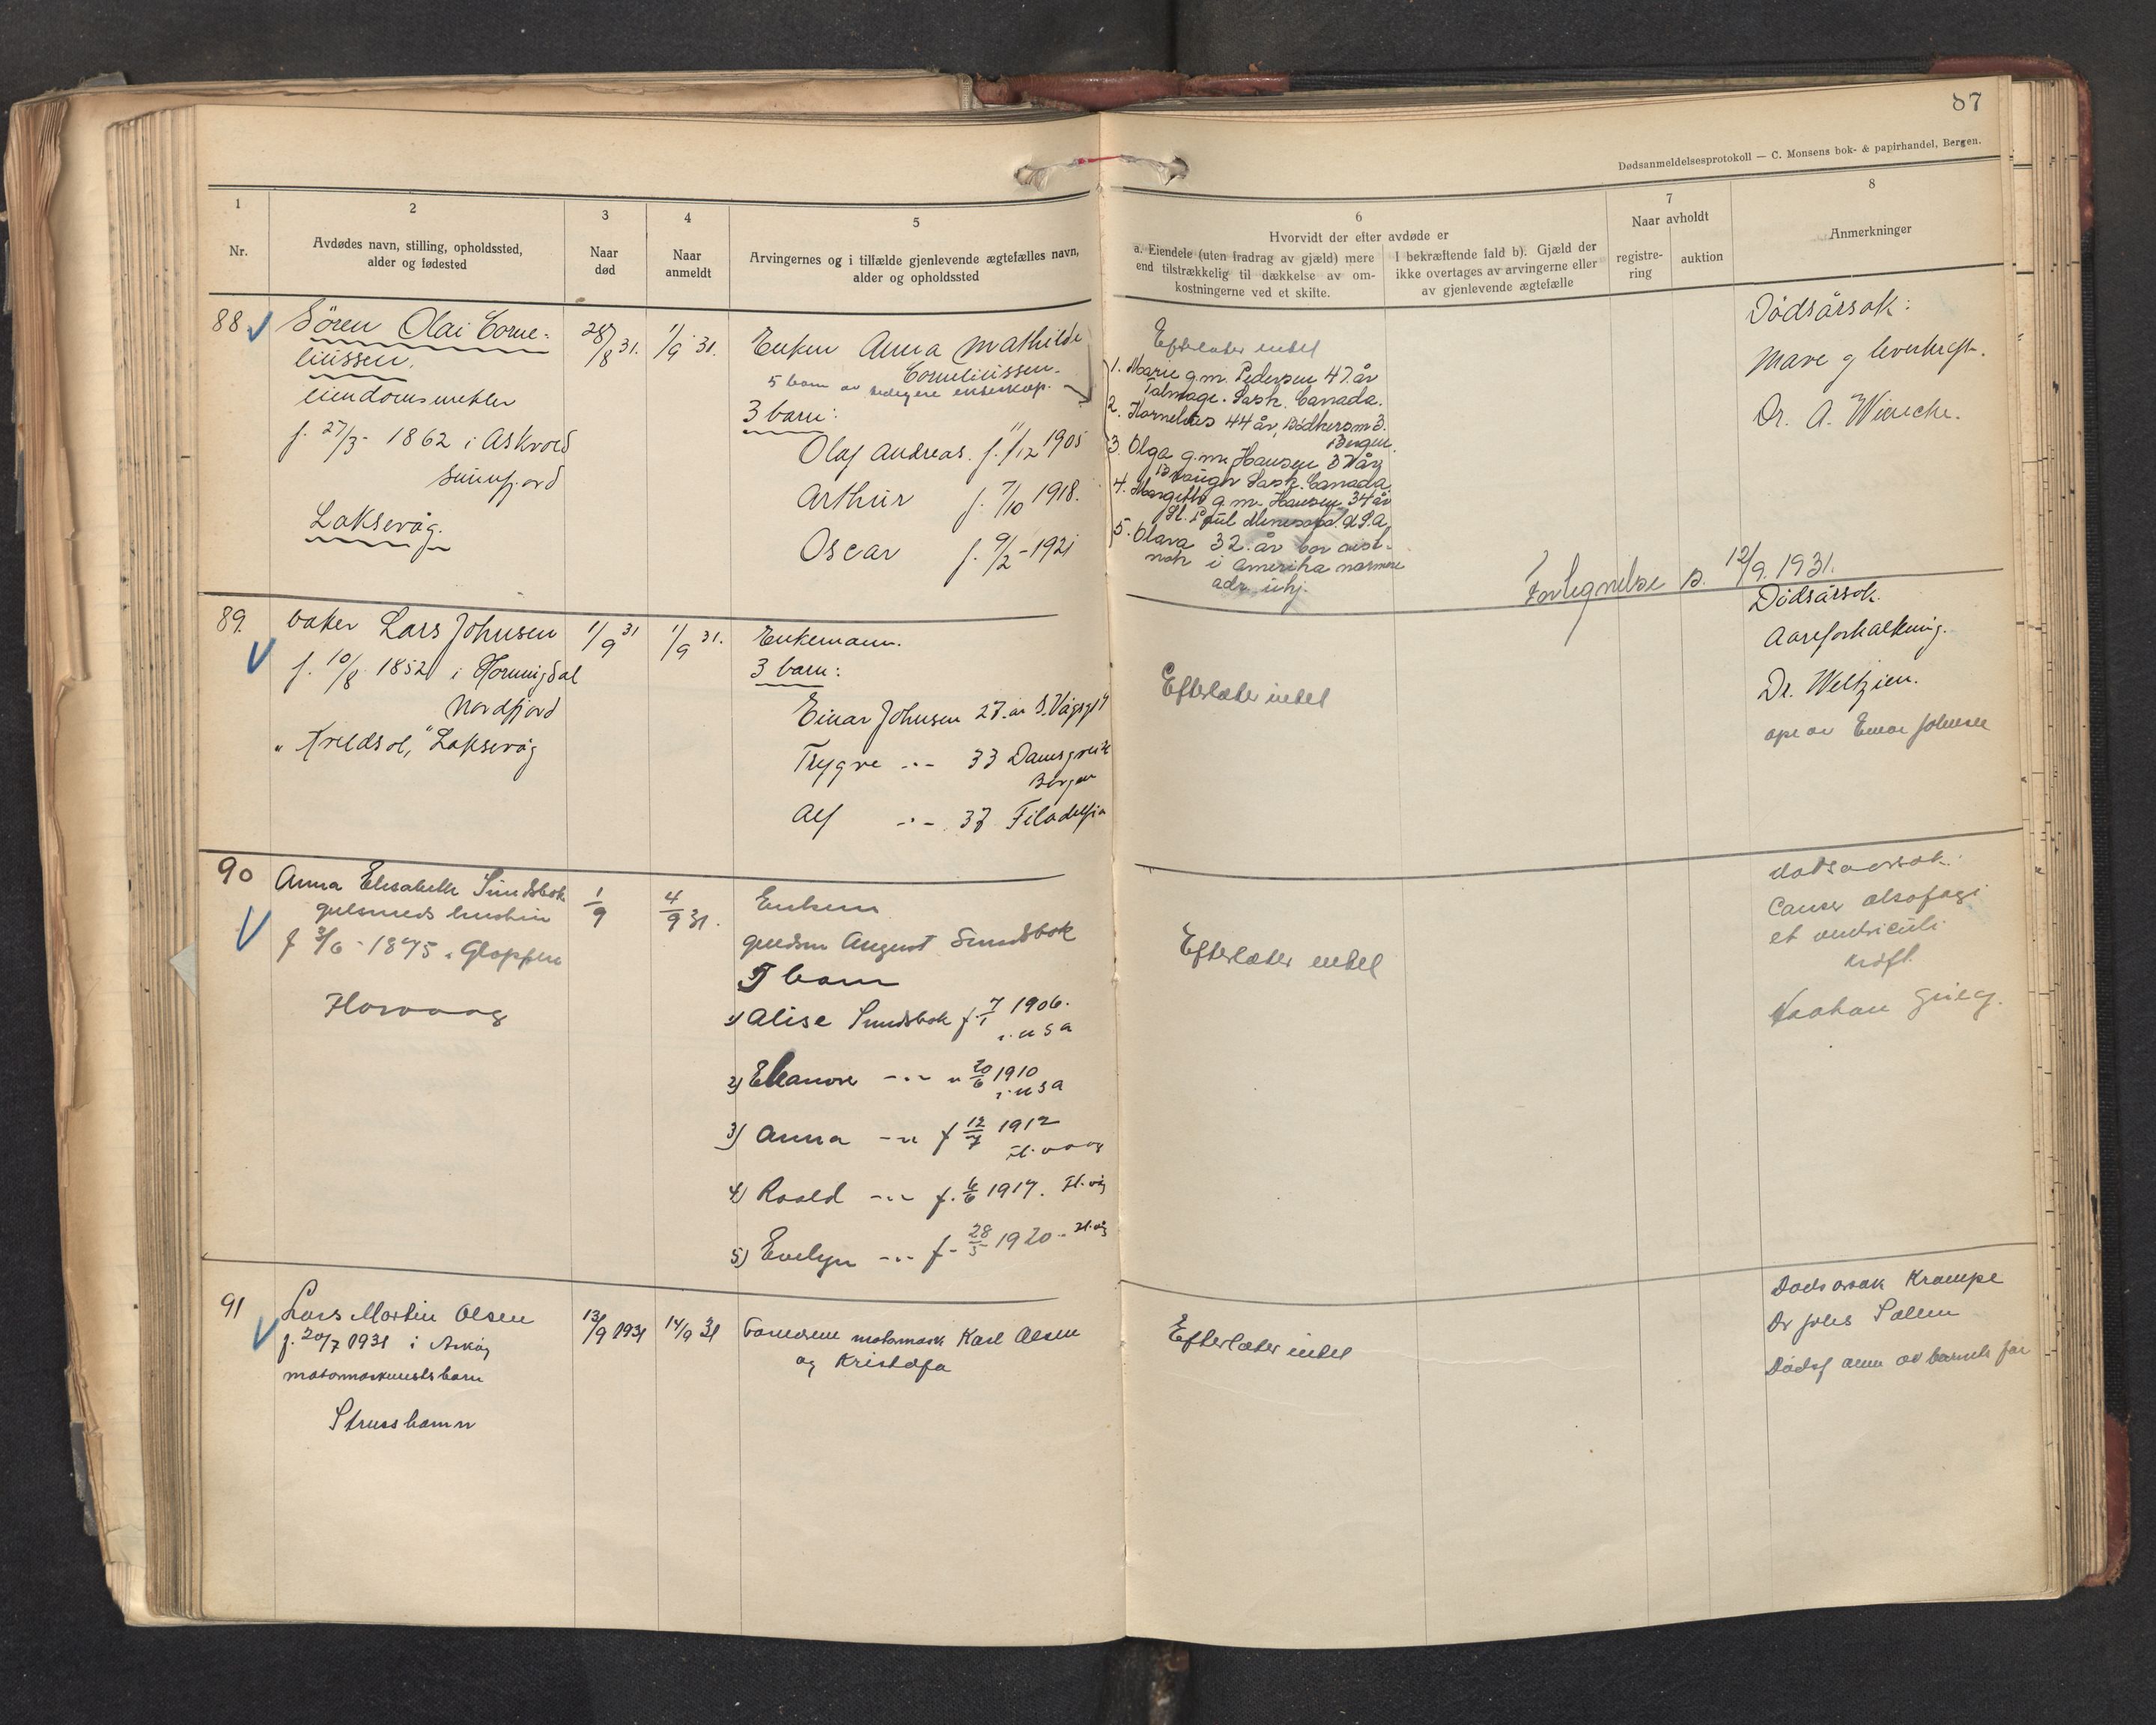 87
Dødsanmeldelsesprotokoll — C. Monsens bok- & papirhandel, Bergen.
1
Nr.
2
Avdødes navn, stilling, opholdssted,
alder og fødested
3
Naar
død
4
Naar
anmeldt
5
Arvingernes og i tilfælde gjenlevende ægtefælles navn,
alder og opholdssted
6
Hvorvidt der efter avdøde er
a. Eiendele (uten fradrag av gjæld) mere
end tilstrækkelig til dækkelse av om-
kostningerne ved et skifte.
I bekræftende fald b). Gjæld der
ikke overtages av arvingerne eller
av gjenlevende ægtefælle
7
Naar avholdt
registre-
ring
auktion
8
Anmerkninger
88
Sören Olai Corne-
liussen.
eiendomsmekler
f. 27/3- 1862 i Askvold
Sunnfjord
Laksevåg.
28/8 31.
1/9 31.
Enken Anna Mathilde
Corneliussen.
5 barn av tidligere ekteskap.
3 barn:
Olaf Andreas. f. 11/12 1905
Arthur f. 7/10 1918.
Oscar f. 9/2-1921
Efterlater intet
1. Marie g.m. Pedersen 47 år
Talmage. Sask. Canada.
2. Kornelius 44 år, Bødkersm 3.
Bergen.
3. Olga g.m. Hansen 37 år
Sask. Canada
4. Margitte g.m. Hansen 34 år
St. Paul Minesota. U.S.A.
5. Olava 32 år bor
nok i Amerika nærmere
adr. ubkj.
Dödsårsak:
Mave og leverkreft.
Dr. A. Wiencke.
Fortegnelse s. 12/9. 1931.
89.
baker Lars Johnsen
f. 10/8 1852 i Hornindal
Nordfjord
"Arildsol," Laksevåg
1/9 31
1/9 31.
Enkemann.
3 barn:
Einar Johnsen 27 år
Trygve -"- 33 Damsgrd
Bergen
Alf -"- 37 Filadelfia
Efterlater intet
Dödsårsak.
Aareforkalkning.
Dr. Weltzien.
opg av Einar Johnsen
90
Anna Elisabeth Sundsbok
gulsmeds hustru
f 3/6-1875 i Gloppen
Florvaag
1/9
4/9 31.
Enkem
gulsm August Sundsbok
5 barn
1) Alise Sundsbok f. 7/1 1906.
i. USA
2) Eleanore -"- " 20/6 1910
i. USA
3) Anna -" f 12/7 1912
Fl. vaag
4) Roald -"- f. 6/6 1917. Fl. våg
5) Evelyn -"- f- 28/5 1920- Fl. våg
Efterlater intet
dødsaarsak:
Cancer øsofagi
et ventriculi
kræft
Haakan Grieg.
91
Lars Martin Olsen
f. 20/7 1931 i Askøy
motormaskinistsbarn
Strusshamn
13/9 1931
14/9 31
Forældrene motormask Karl Olsen
og Kristofa
Efterlater intet
Dødsarsak Krampe
Dr Johs Sælen
Dødsf anm av barnets far